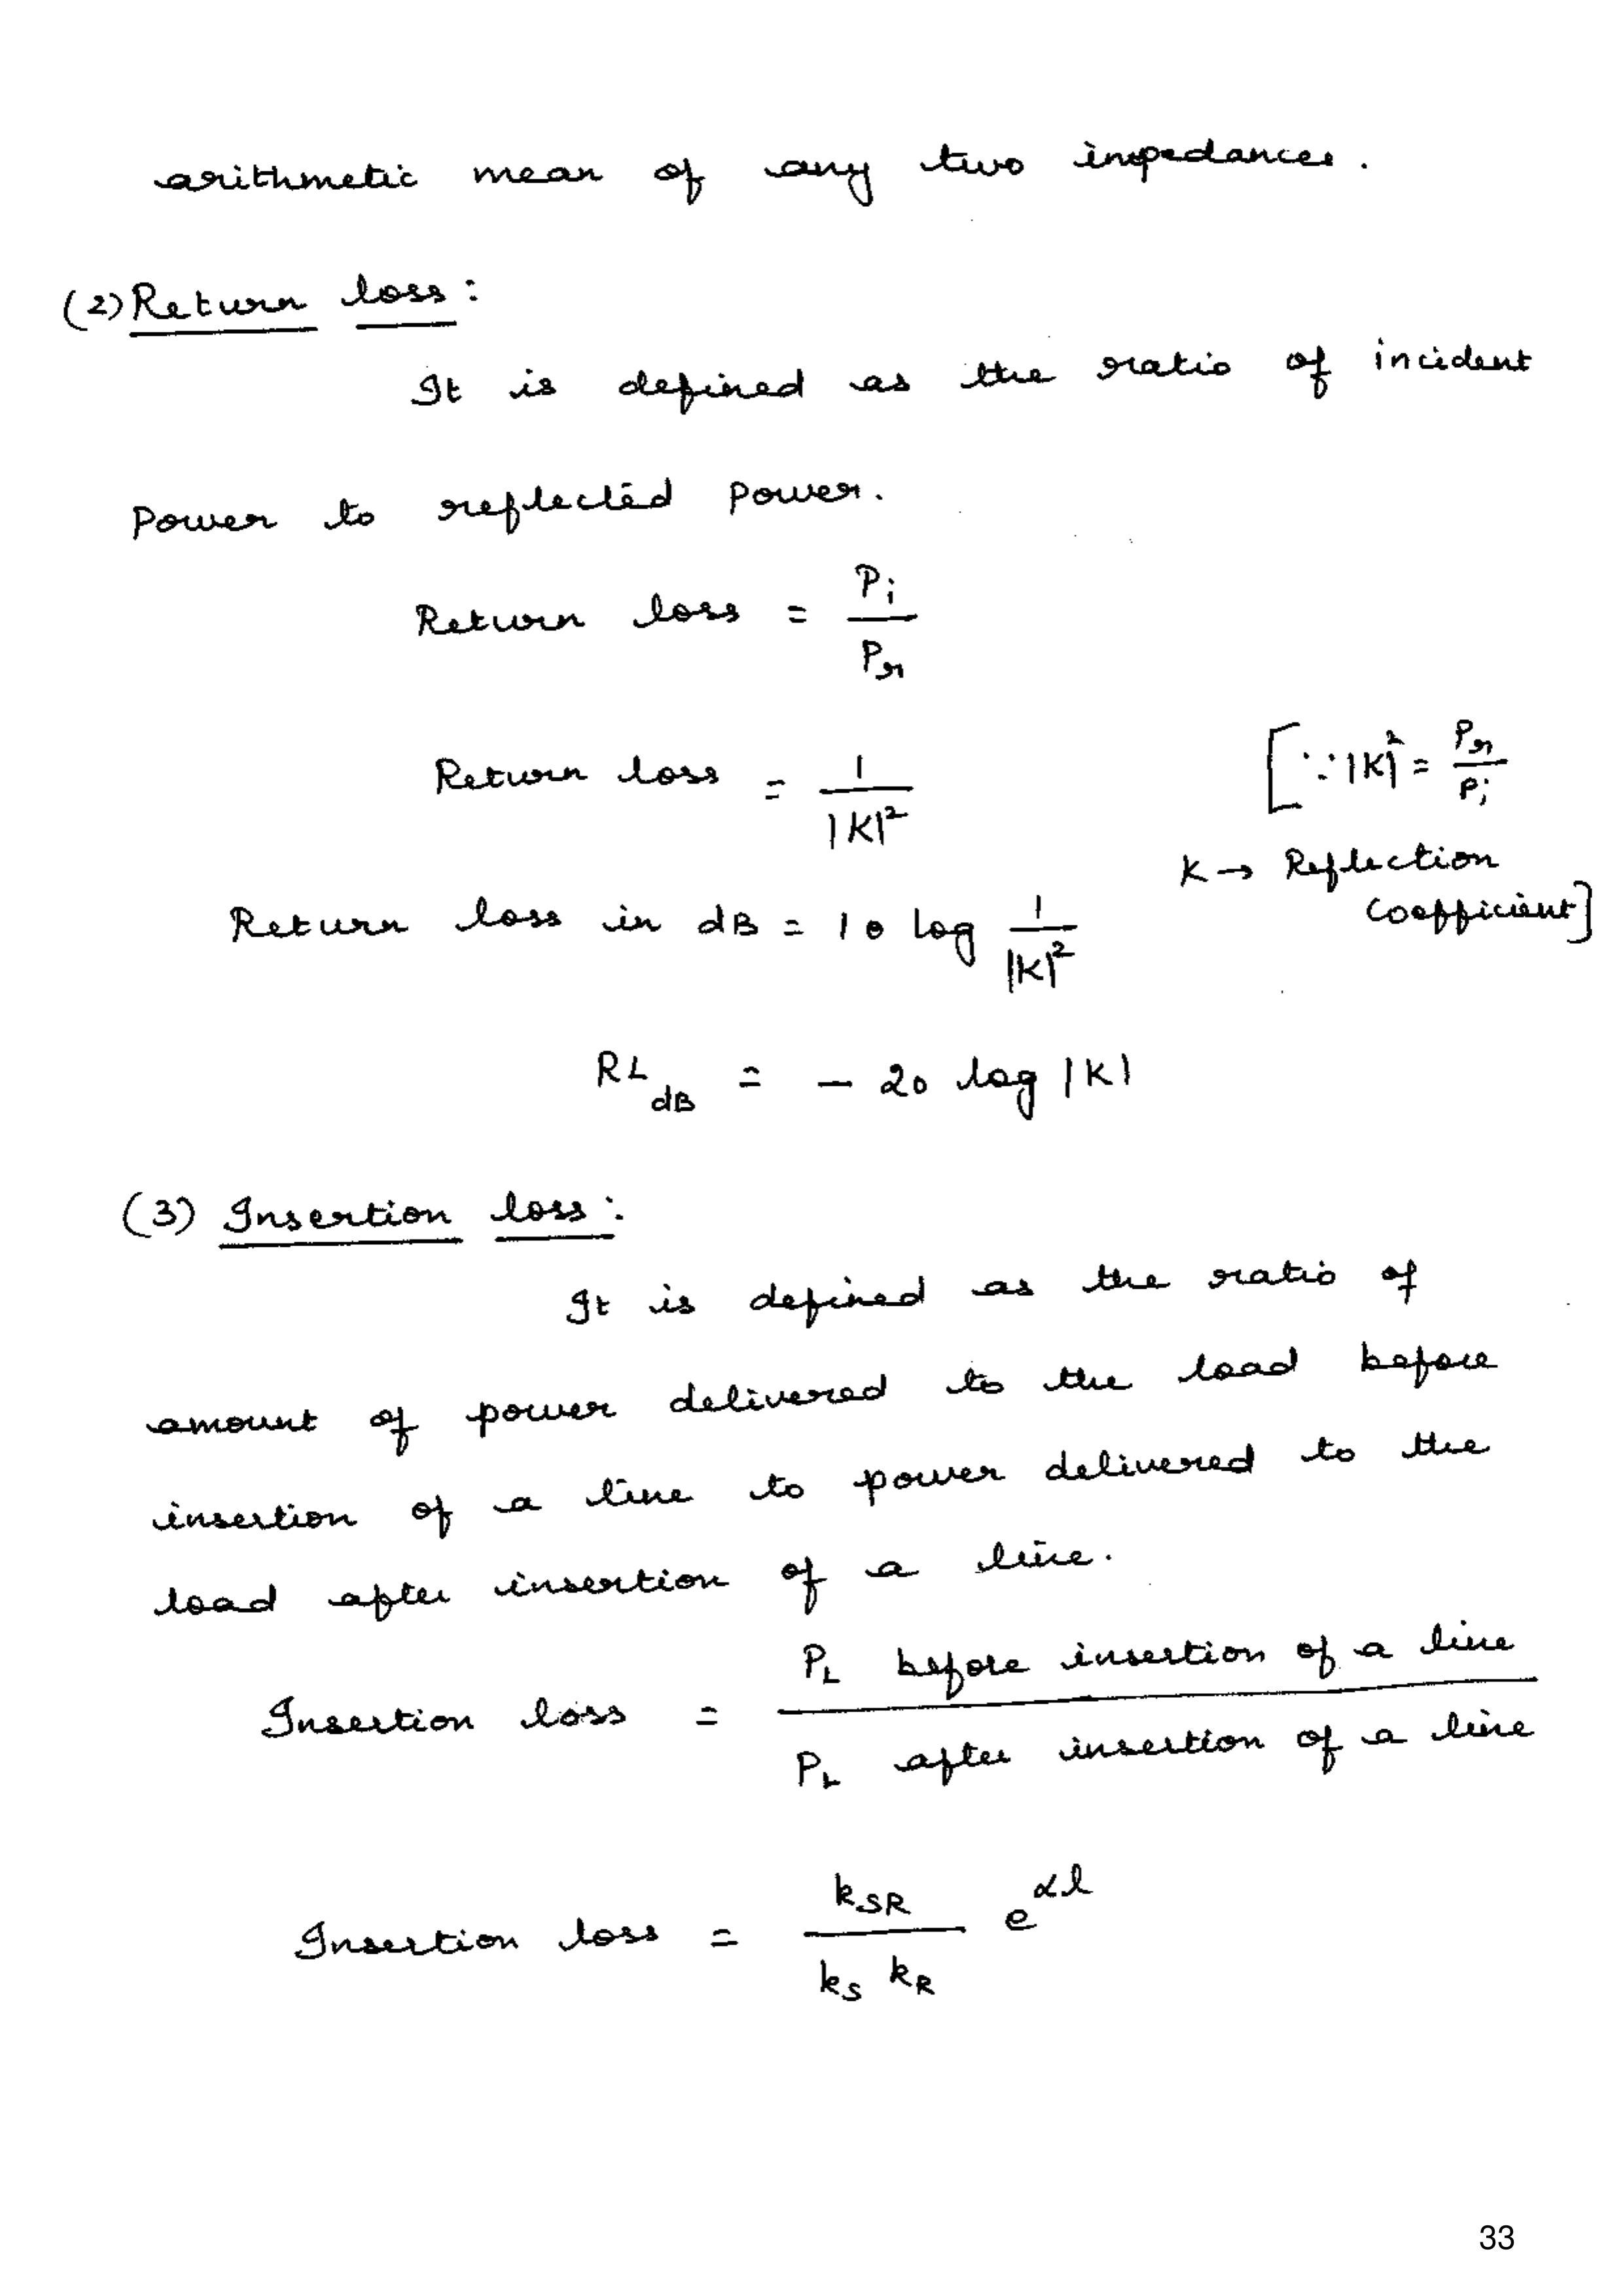 arithmetic mean of any two impedances.
(2) Return loss:
It is defined as the ratio of incident
Power to reflected power.
Return loss = Pi / Pr
Return loss = 1 / |K|² [∵ |K|² = Pr / Pi
K → Reflection
Coefficient]
Return loss in dB = 10 log 1 / |K|²
RL dB = - 20 log |K|
(3) Insertion loss:
It is defined as the ratio of
amount of power delivered to the load before
insertion of a line to power delivered to the
load after insertion of a line.
Insertion loss = PL before insertion of a line / PL after insertion of a line
Insertion loss = kSR / kS kR e^αl
33